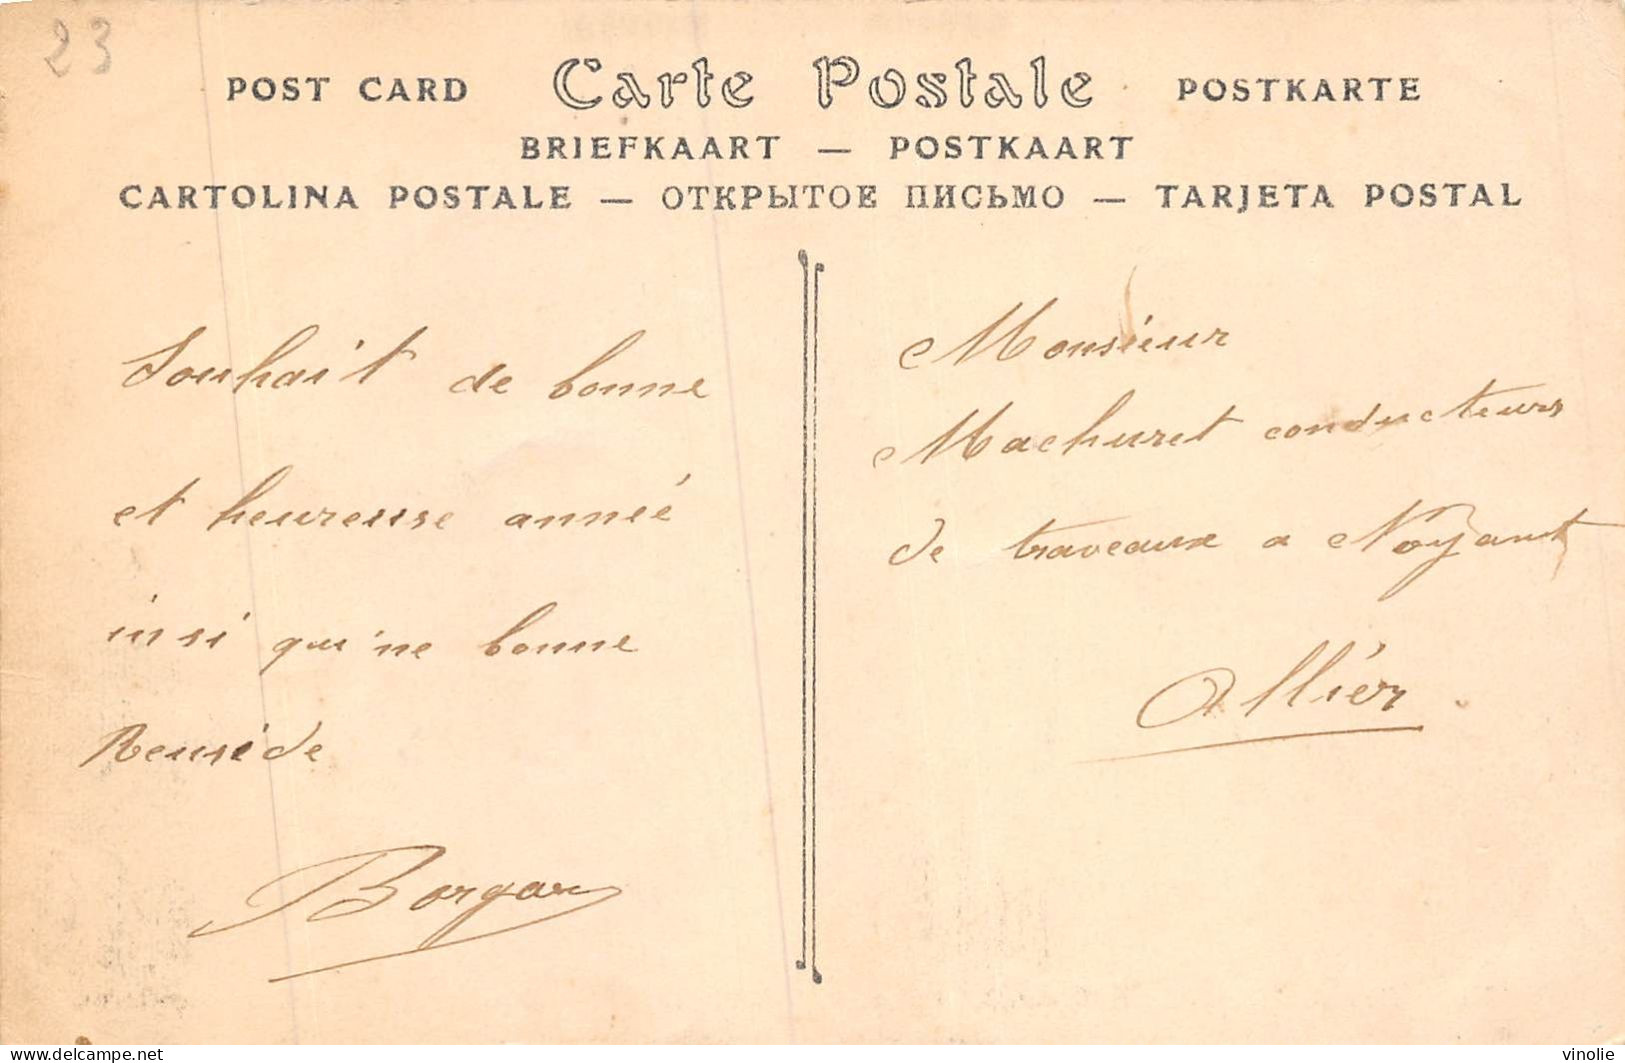 23
POST CARD Carte Postale POSTKARTE
BRIEFKAART — POSTKAART
CARTOLINA POSTALE — ОТКРЫТОЕ ПИСЬМО — TARJETA POSTAL
Souhait de bonne
et heureuse année
insi qu'ne bonne
Reuside
Borgar
Monsieur
Machuret conducteurs
de traveaux a Noyant
Allier
delcampe.net
vinolie